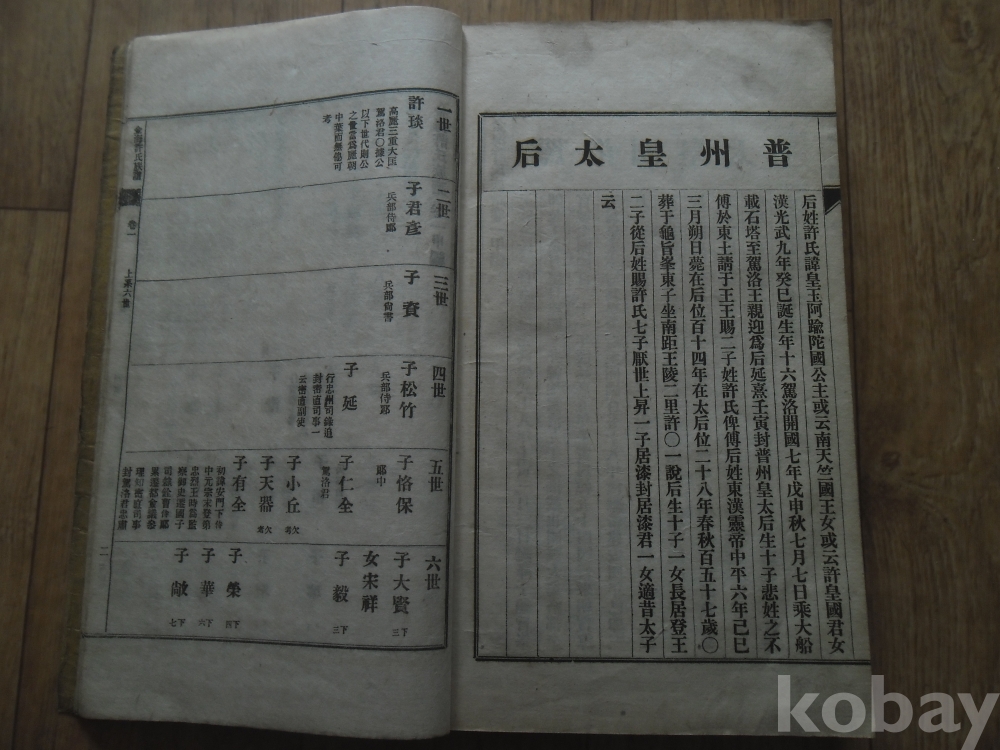 普州皇太后
后姓許氏諱皇玉阿踰陀國公主或云南天竺國王女或云許皇國君女
漢光武九年癸巳誕生年十六駕洛開國七年戊申秋七月七日乘大船
載石塔至駕洛王親迎爲后延熹壬寅封普州皇太后生十子悲姓之不
傅於東土請于王王賜二子姓許氏俾傅后姓東漢靈帝中平六年己巳
三月朔日薨在后位百十四年在太后位二十八年春秋百五十七歲〇
葬于龜旨峯東子坐南距王陵二里許〇一說后生十子一女長居登王
二子從后姓賜許氏七子厭世上昇一子居漆封居漆君一女適昔太子
云
一世
許琰
高麗三重大匡
駕洛君〇據公
以下世代則公
之世當爲麗朝
中葉而無徵可
考
二世
子君彥
兵部侍郎
三世
子資
兵部尙書
四世
子松竹
兵部侍郎
子延
行忠州司錄追
封密直司事一
云密直副使
五世
子恪保
郎中
子仁全
駕洛君
子小丘
欠考
子天器
欠考
子有全
六世
子大賢
下三
女宋祥
子毅
下三
子榮
下四
子華
下六
子敞
下七
卷一
上系六世
二
kobay